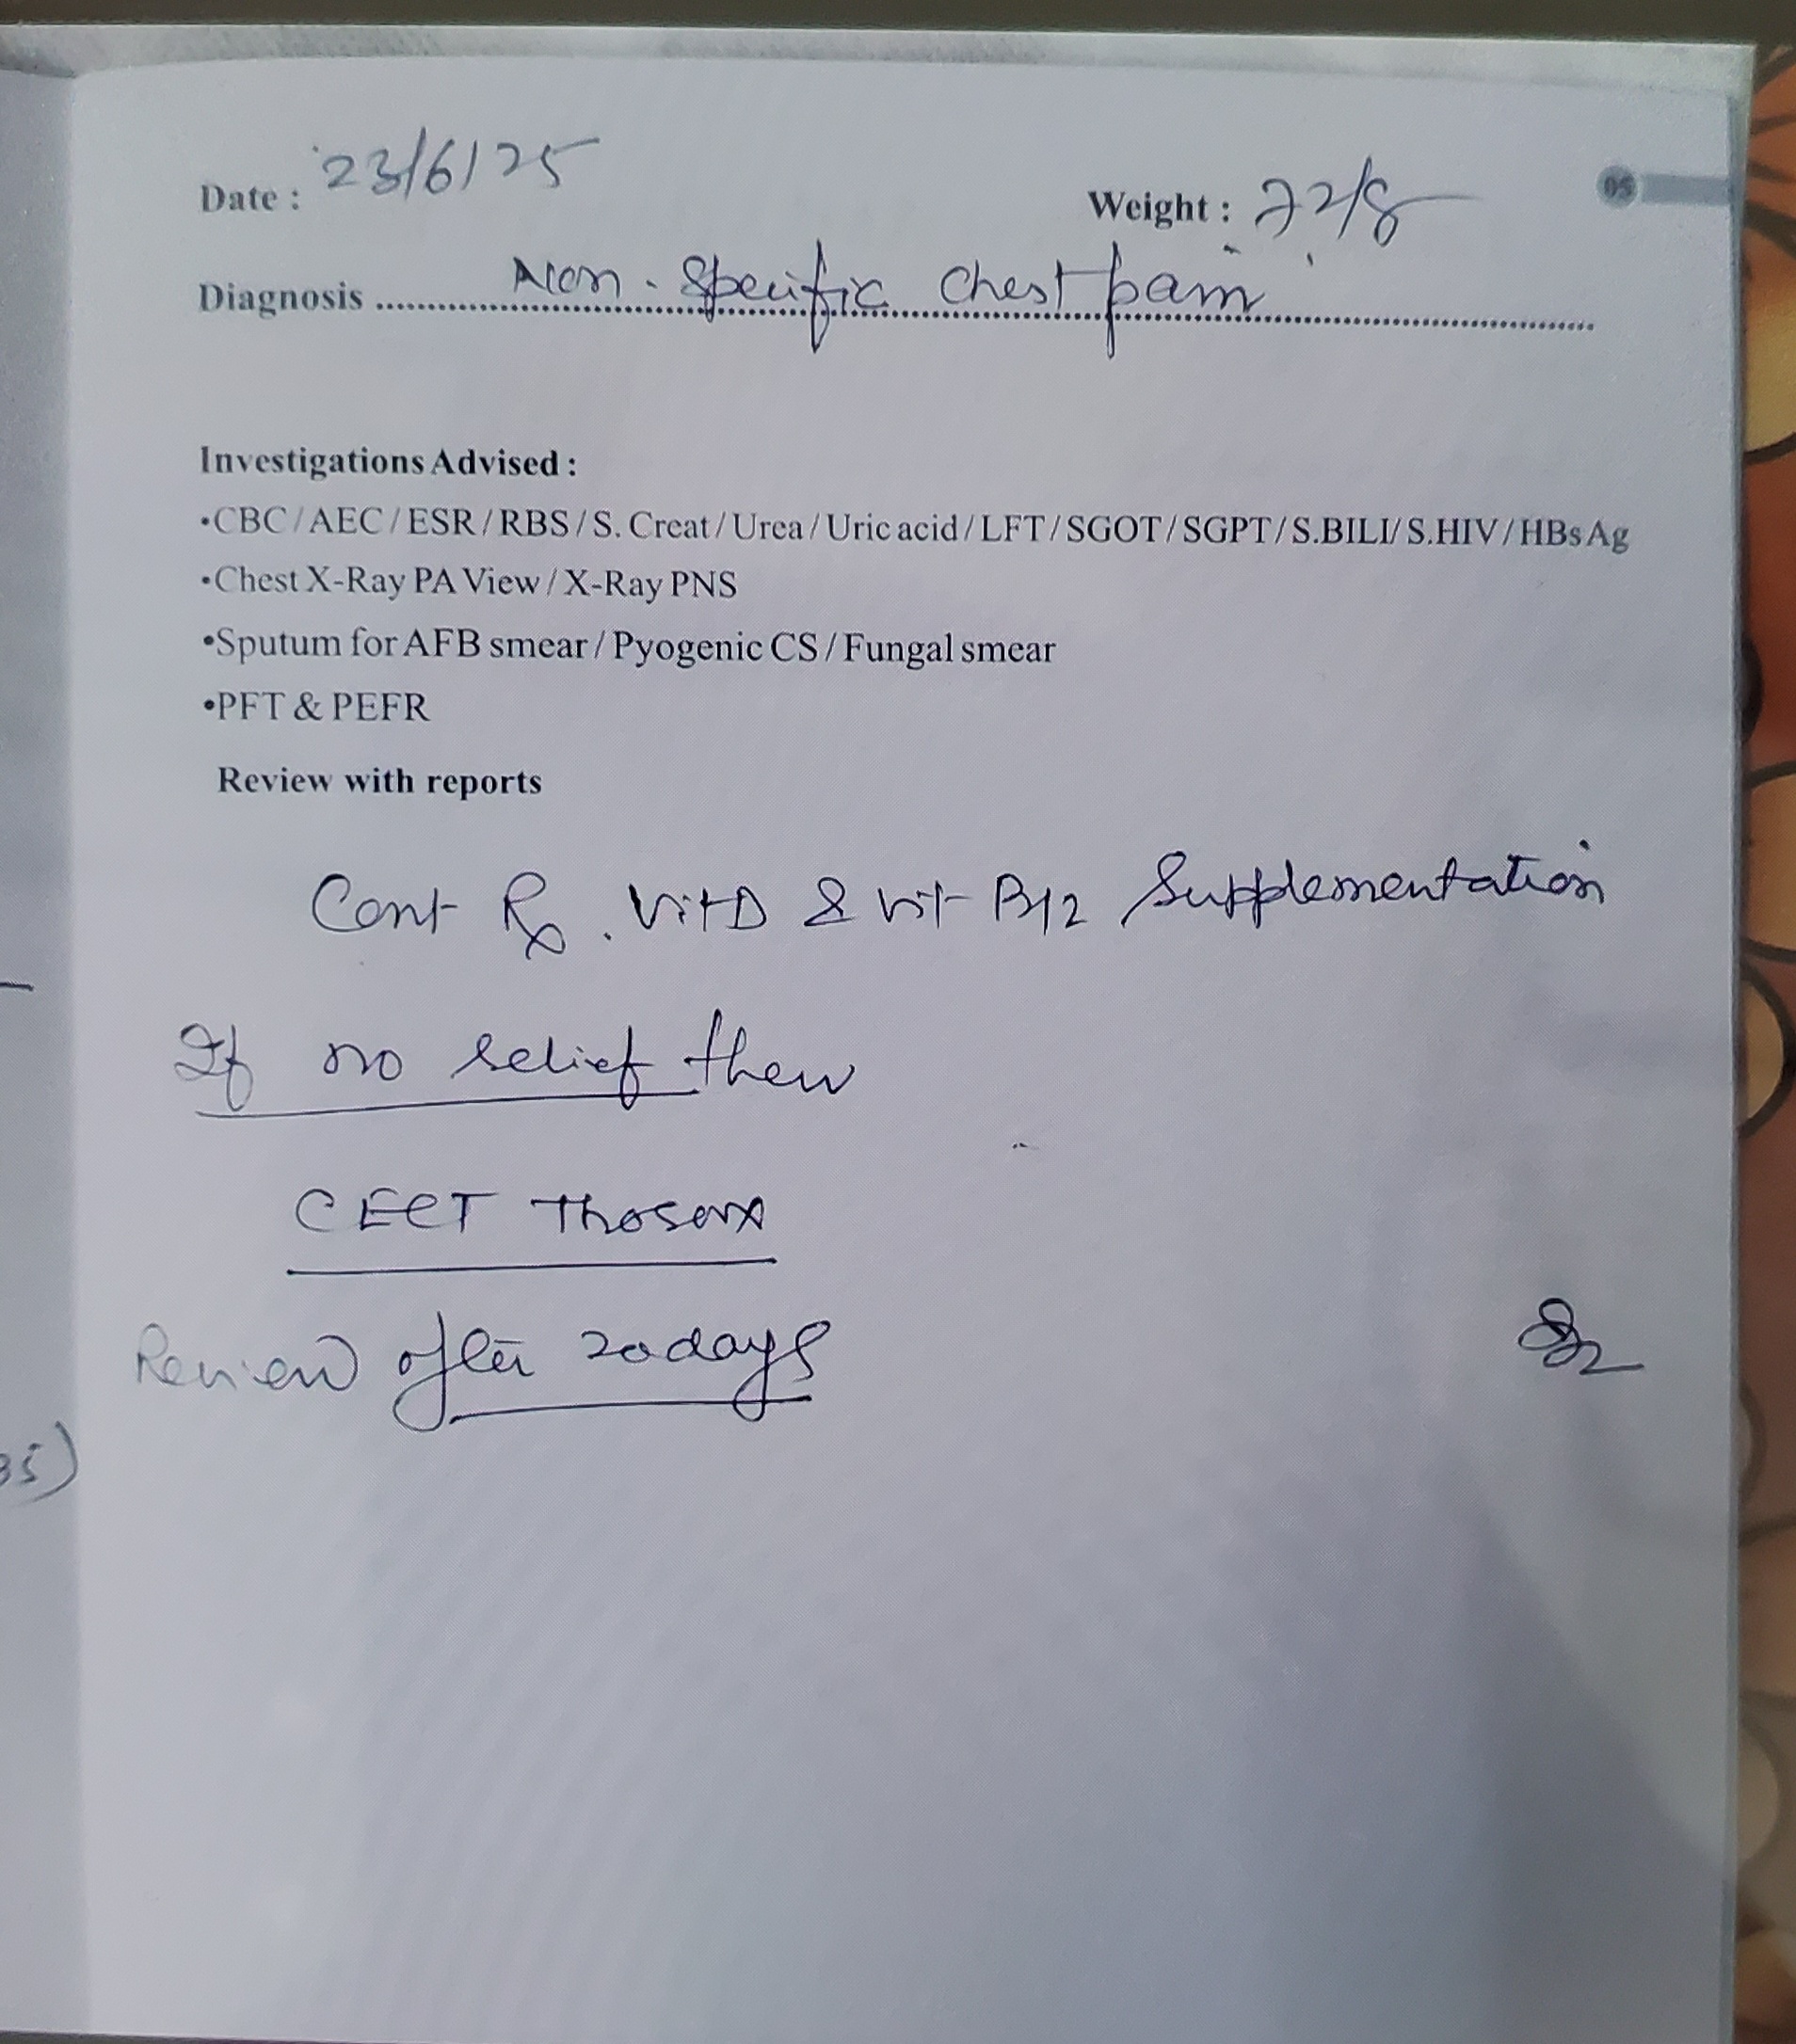 05
Date : 23/6/25 Weight :
Diagnosis Non-Specific Chest pain
Investigations Advised :
•CBC / AEC / ESR / RBS / S. Creat / Urea / Uric acid / LFT / SGOT / SGPT / S.BILI/ S.HIV / HBs Ag
•Chest X-Ray PA View / X-Ray PNS
•Sputum for AFB smear / Pyogenic CS / Fungal smear
•PFT & PEFR
Review with reports
Cont Rx. Vit D & vit B12 Supplementation
If no relief then
CECT Thorax
Review after 20 days